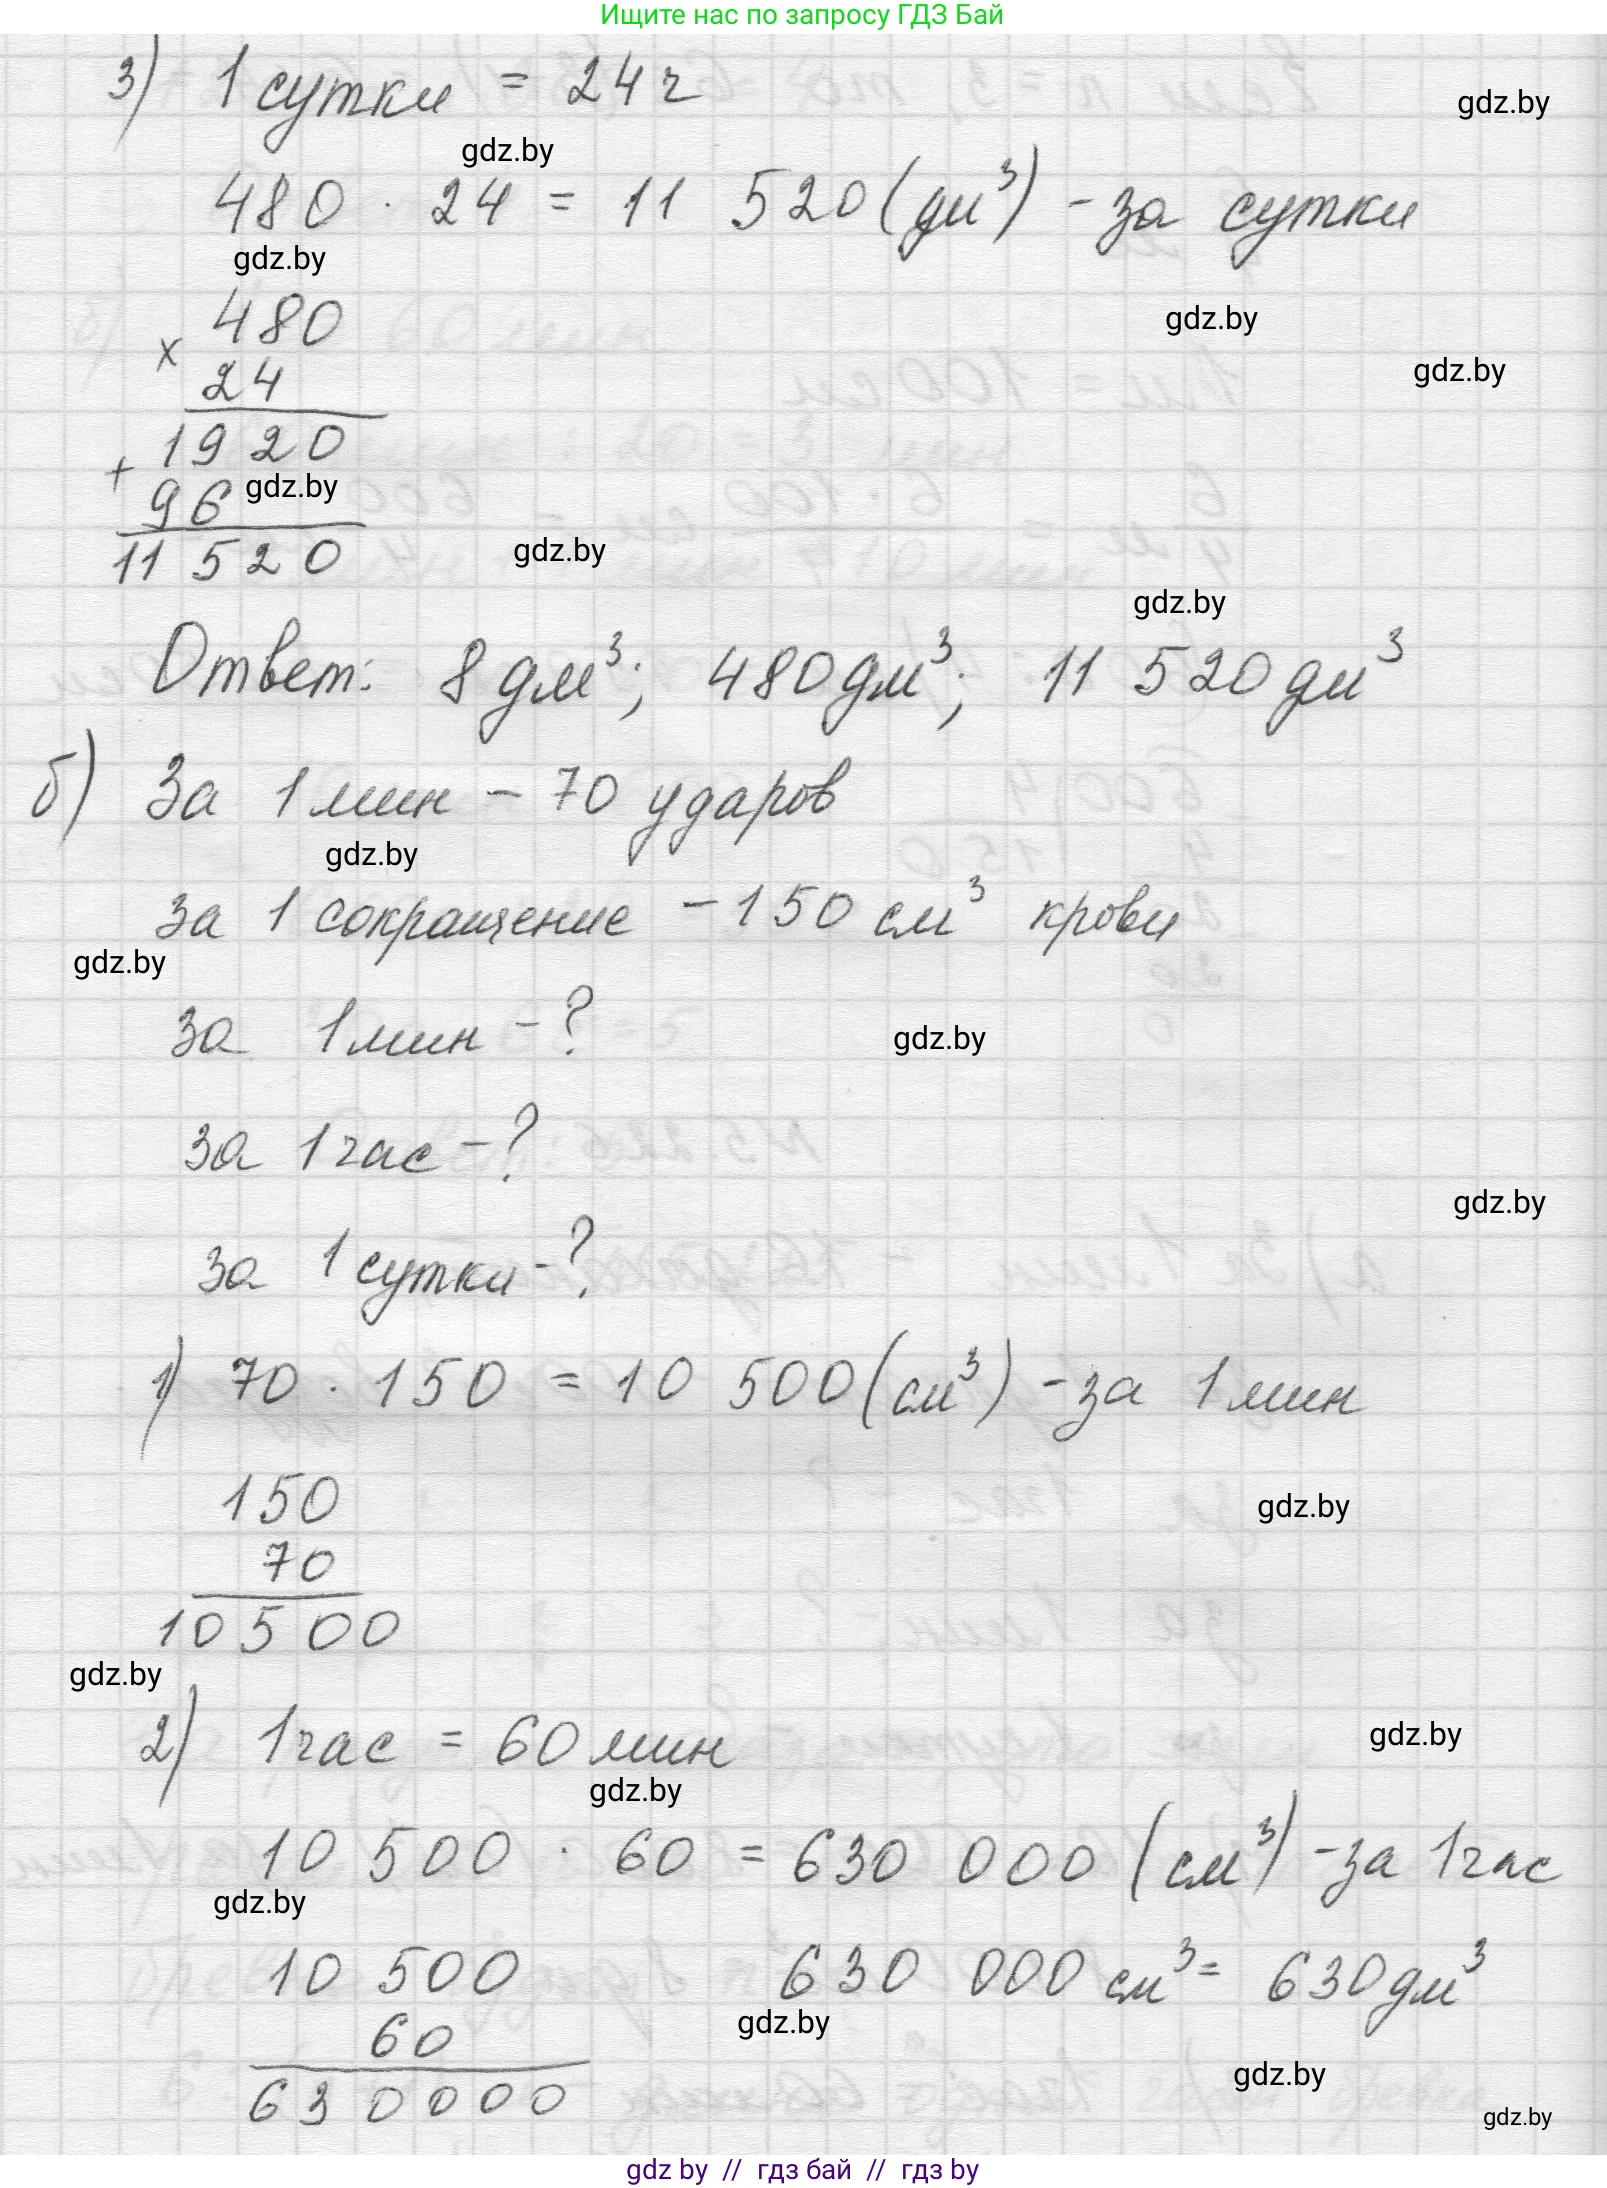 Ищите нас по запросу ГДЗ Бай
3) 1 сутки = 24 ч
gdz.by
gdz.by
480 · 24 = 11 520 (дм³) - за сутки
gdz.by
gdz.by
480
×
24
gdz.by
1920
+
96
gdz.by
11 520
gdz.by
gdz.by
Ответ: 8 дм³; 480 дм³; 11 520 дм³
б) За 1 мин – 70 ударов
gdz.by
за 1 сокращение – 150 см³ крови
gdz.by
за 1 мин - ?
gdz.by
за 1 час - ?
gdz.by
за 1 сутки - ?
1) 70 · 150 = 10 500 (см³) - за 1 мин
150
gdz.by
70
10 500
gdz.by
2) 1 час = 60 мин
gdz.by
gdz.by
10 500 · 60 = 630 000 (см³) - за 1 час
gdz.by
10 500 630 000 см³ = 630 дм³
60
gdz.by
gdz.by
630000
gdz.by
gdz by // гдз бай // гдз by